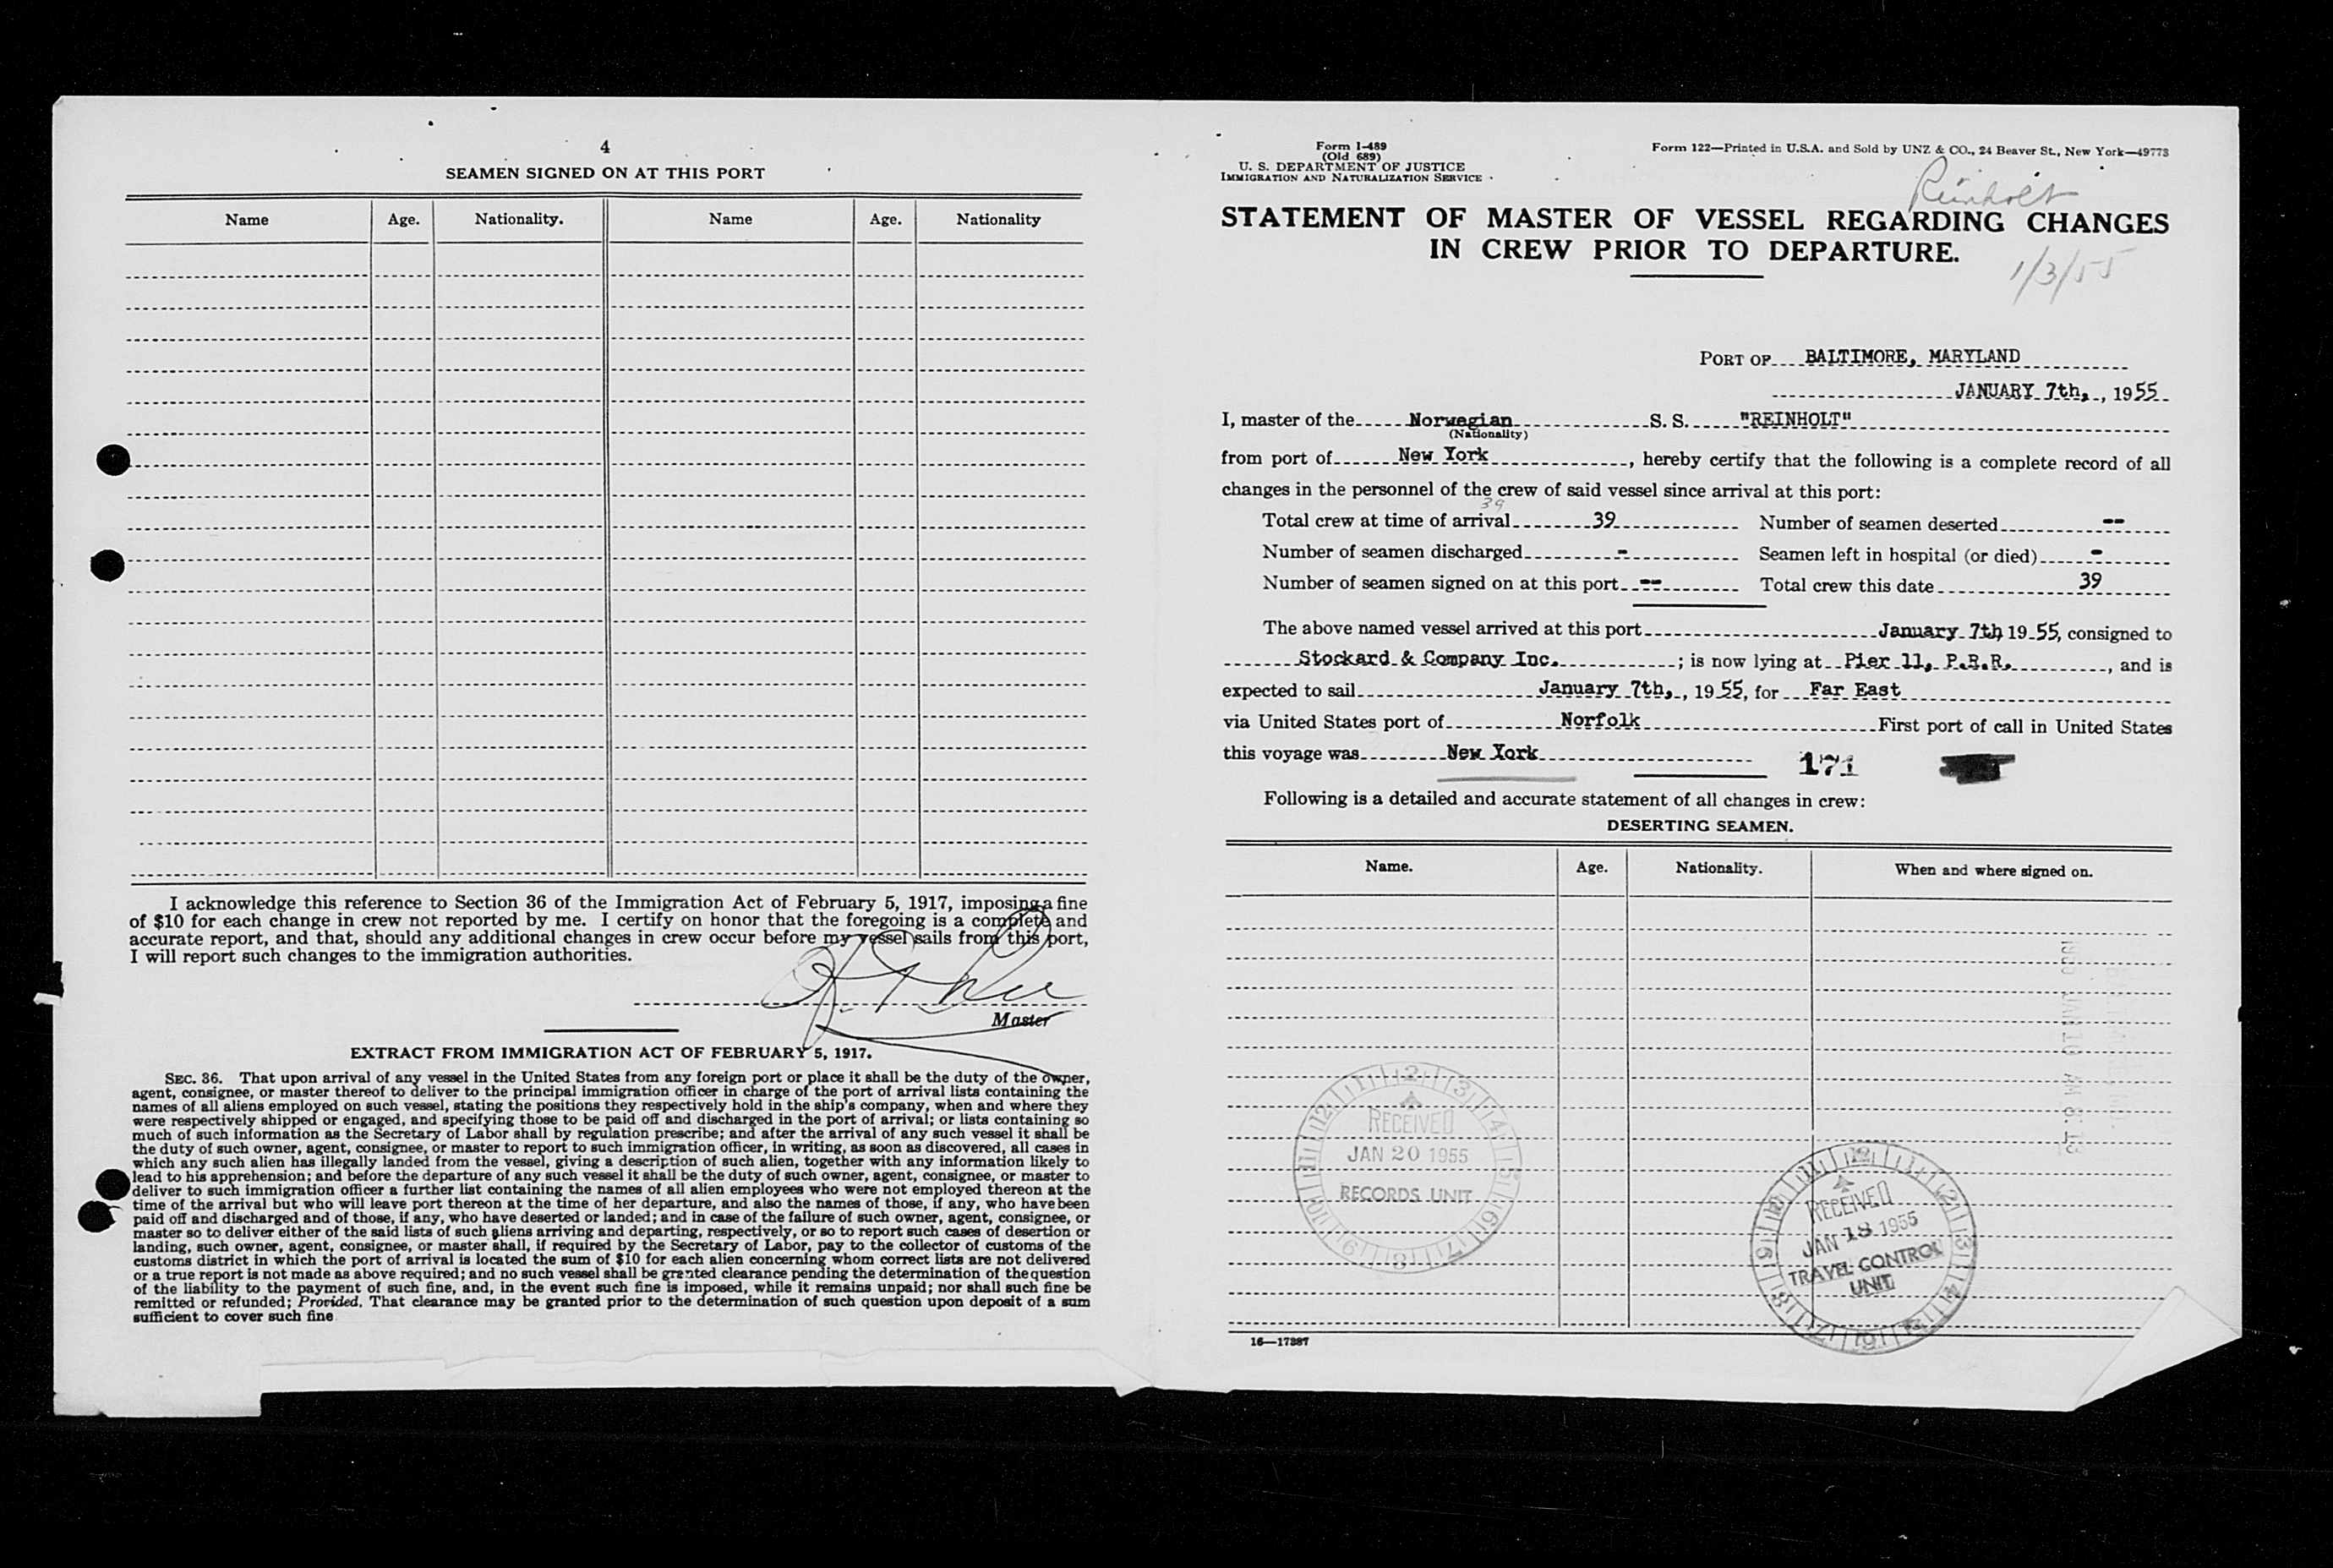 4
SEAMEN SIGNED ON AT THIS PORT
Name Age. Nationality. Name Age. Nationality
I acknowledge this reference to Section 36 of the Immigration Act of February 5, 1917, imposing a fine
of $10 for each change in crew not reported by me. I certify on honor that the foregoing is a complete and
accurate report, and that, should any additional changes in crew occur before my vessel sails from this port,
I will report such changes to the immigration authorities.
Master
EXTRACT FROM IMMIGRATION ACT OF FEBRUARY 5, 1917.
SEC. 36. That upon arrival of any vessel in the United States from any foreign port or place it shall be the duty of the owner,
agent, consignee, or master thereof to deliver to the principal immigration officer in charge of the port of arrival lists containing the
names of all aliens employed on such vessel, stating the positions they respectively hold in the ship's company, when and where they
were respectively shipped or engaged, and specifying those to be paid off and discharged in the port of arrival; or lists containing so
much of such information as the Secretary of Labor shall by regulation prescribe; and after the arrival of any such vessel it shall be
the duty of such owner, agent, consignee, or master to report to such immigration officer, in writing, as soon as discovered, all cases in
which any such alien has illegally landed from the vessel, giving a description of such alien, together with any information likely to
lead to his apprehension; and before the departure of any such vessel it shall be the duty of such owner, agent, consignee, or master to
deliver to such immigration officer a further list containing the names of all alien employees who were not employed thereon at the
time of the arrival but who will leave port thereon at the time of her departure, and also the names of those, if any, who have been
paid off and discharged and of those, if any, who have deserted or landed; and in case of the failure of such owner, agent, consignee, or
master so to deliver either of the said lists of such aliens arriving and departing, respectively, or so to report such cases of desertion or
landing, such owner, agent, consignee, or master shall, if required by the Secretary of Labor, pay to the collector of customs of the
customs district in which the port of arrival is located the sum of $10 for each alien concerning whom correct lists are not delivered
or a true report is not made as above required; and no such vessel shall be granted clearance pending the determination of the question
of the liability to the payment of such fine, and, in the event such fine is imposed, while it remains unpaid; nor shall such fine be
remitted or refunded; Provided, That clearance may be granted prior to the determination of such question upon deposit of a sum
sufficient to cover such fine
Form I-489
(Old 689)
U. S. DEPARTMENT OF JUSTICE
IMMIGRATION AND NATURALIZATION SERVICE
Form 122—Printed in U.S.A. and Sold by UNZ & CO., 24 Beaver St., New York—49773
Reinholt
STATEMENT OF MASTER OF VESSEL REGARDING CHANGES
IN CREW PRIOR TO DEPARTURE.
1/3/55
PORT OF BALTIMORE, MARYLAND
JANUARY 7th, , 1955
I, master of the Norwegian S. S. "REINHOLT"
(Nationality)
from port of New York , hereby certify that the following is a complete record of all
changes in the personnel of the crew of said vessel since arrival at this port:
39
Total crew at time of arrival 39 Number of seamen deserted --
Number of seamen discharged - Seamen left in hospital (or died) -
Number of seamen signed on at this port -- Total crew this date 39
The above named vessel arrived at this port January 7th 1955, consigned to
Stockard & Company Inc. ; is now lying at Pier 11, P.R.R. , and is
expected to sail January 7th, , 1955, for Far East
via United States port of Norfolk First port of call in United States
this voyage was New York
171
Following is a detailed and accurate statement of all changes in crew:
DESERTING SEAMEN.
Name. Age. Nationality. When and where signed on.
RECEIVED
JAN 20 1955
RECORDS UNIT
RECEIVED
JAN 18 1955
TRAVEL CONTROL
UNIT
16—17887